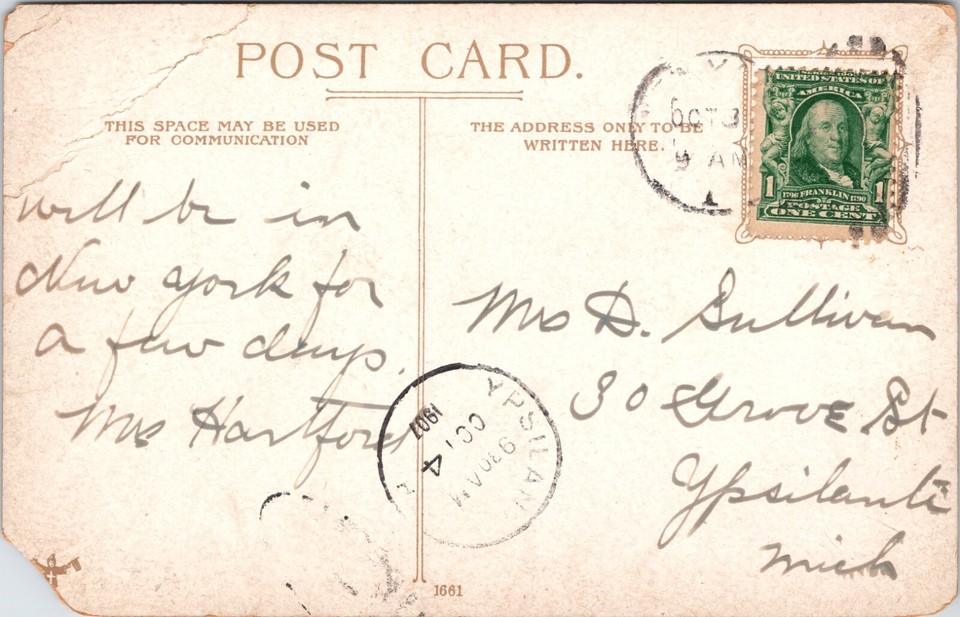 POST CARD.
THIS SPACE MAY BE USED
FOR COMMUNICATION
THE ADDRESS ONLY TO BE
WRITTEN HERE.
OCT 3
9 AM
1
UNITED STATES OF
AMERICA
1 1
1706 FRANKLIN 1790
POSTAGE
ONE CENT
will be in
New York for
a few days.
Mrs Hartford
Mrs D. Sullivan
30 Grove St
Ypsilanti
Mich
YPSILAN
OCT 4
930AM
1907
1661